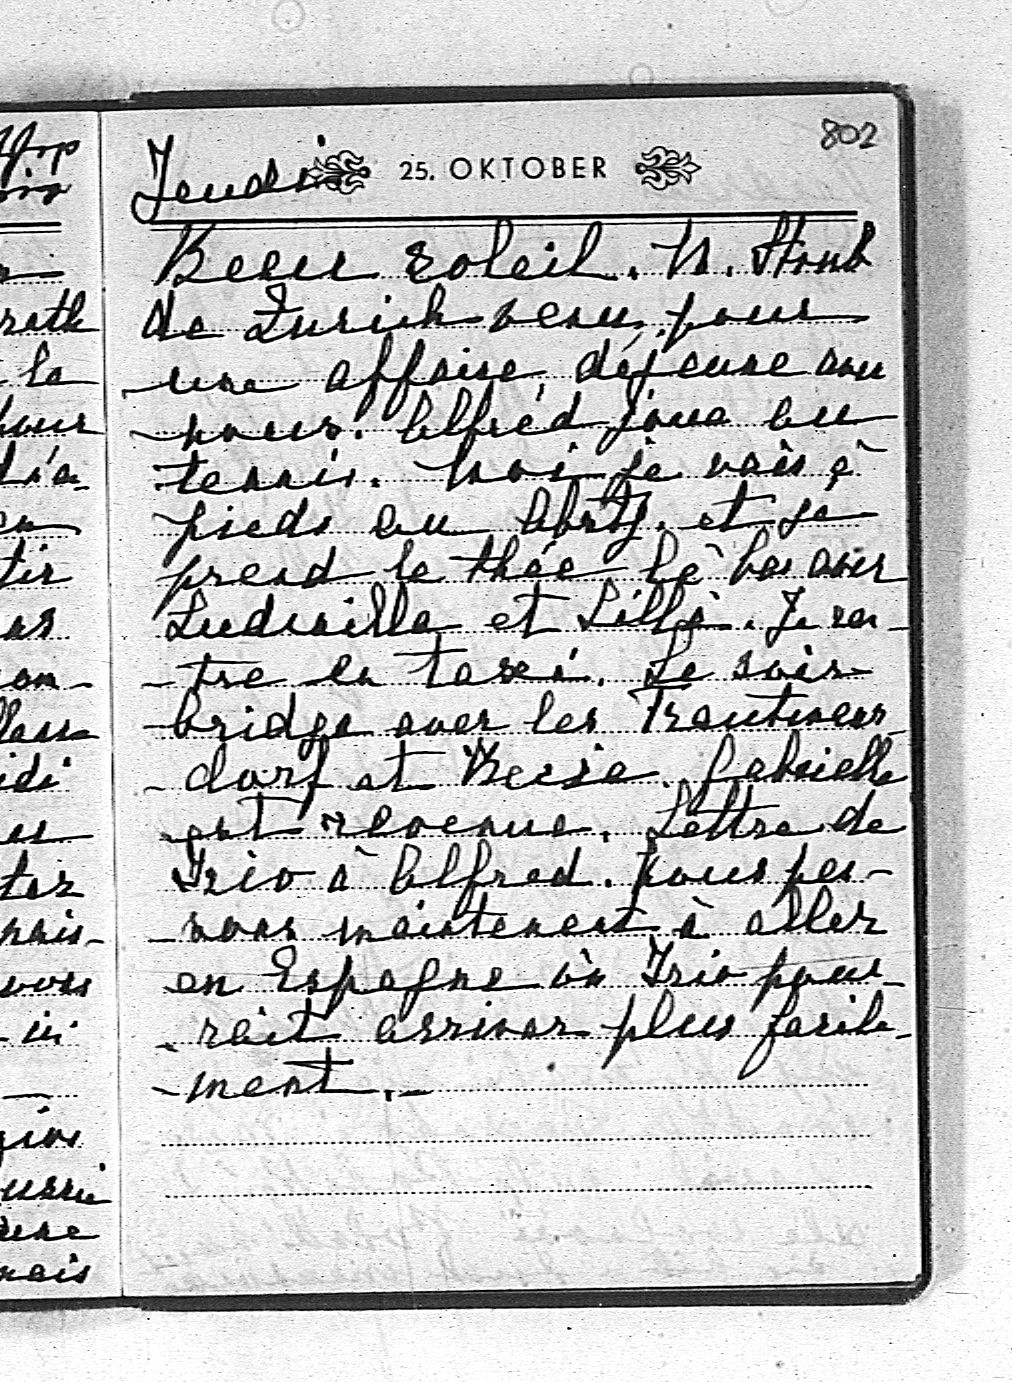 802
Jeudi 25. OKTOBER
Beau soleil. M. Straub
de Zurich venu pour
une affaire, déjeune avec
nous. Alfred joue au
tennis. Moi je vais à
pieds au et je
prend le thée là bas avec
Ludmilla et Lilly. Je ren-
tre en taxi. Le soir
bridge avec les Trauttmans-
dorf et Gabrielle
est revenue. Lettre de
Trio à Alfred. Nous pen-
sons maintenant à aller
en Espagne où Trio pour-
rait arriver plus facile-
ment.-